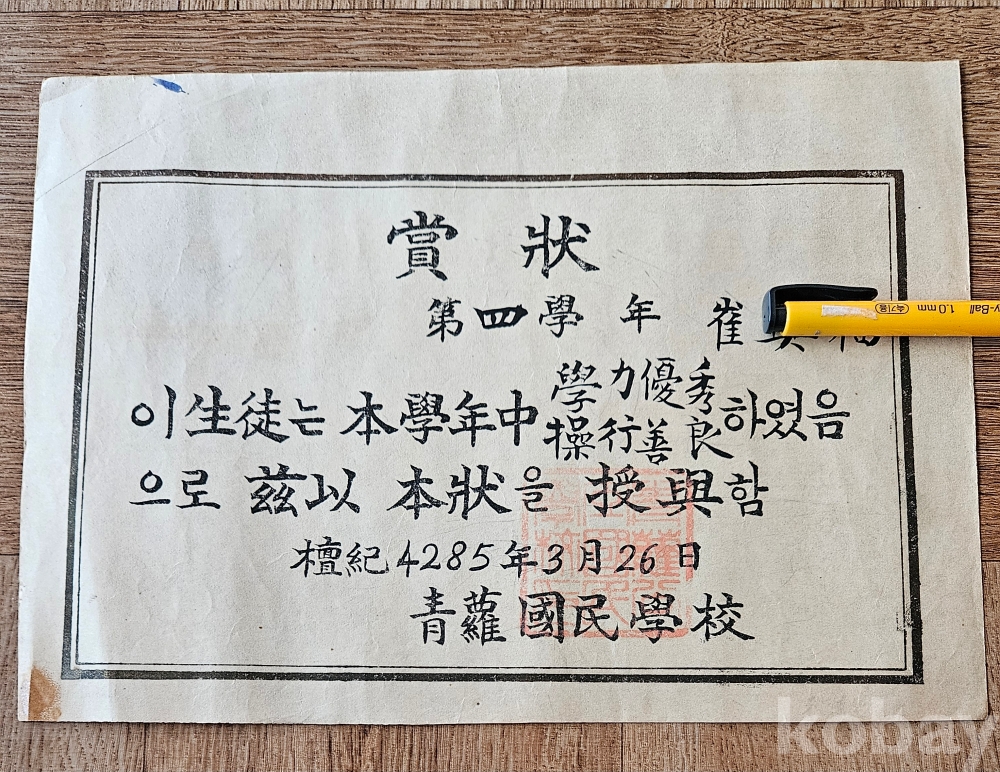 賞 狀
第四學 年 崔
이生徒는 本學年中 學力優秀 하였음
操行善良
으로 玆以 本狀을 授與함
檀紀4285年3月26日
青蘿國民學校
y-Ball 1.0mm
kobay